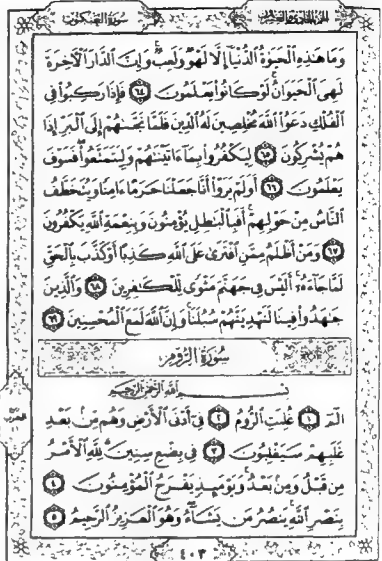 سورة العنكبوت
وَمَا هَٰذِهِ الْحَيَوٰةُ الدُّنْيَآ إِلَّا لَهْوٌ وَلَعِبٌ وَإِنَّ الدَّارَ الْأَخِرَةَ
لَهِىَ الْحَيَوَانُ لَوْ كَانُوا۟ يَعْلَمُونَ ٦٤ فَإِذَا رَكِبُوا۟ فِى
الْفُلْكِ دَعَوُا۟ اللَّهَ مُخْلِصِينَ لَهُ الدِّينَ فَلَمَّا نَجَّىٰهُمْ إِلَى الْبَرِّ إِذَا
هُمْ يُشْرِكُونَ ٦٥ لِيَكْفُرُوا۟ بِمَآ ءَاتَيْنَٰهُمْ وَلِيَتَمَتَّعُوا۟ فَسَوْفَ
يَعْلَمُونَ ٦٦ أَوَلَمْ يَرَوْا۟ أَنَّا جَعَلْنَا حَرَمًا ءَامِنًا وَيُتَخَطَّفُ
النَّاسُ مِنْ حَوْلِهِمْ أَفَبِالْبَٰطِلِ يُؤْمِنُونَ وَبِنِعْمَةِ اللَّهِ يَكْفُرُونَ
٦٧ وَمَنْ أَظْلَمُ مِمَّنِ افْتَرَىٰ عَلَى اللَّهِ كَذِبًا أَوْ كَذَّبَ بِالْحَقِّ
لَمَّا جَآءَهُۥٓ أَلَيْسَ فِى جَهَنَّمَ مَثْوًى لِّلْكَٰفِرِينَ ٦٨ وَالَّذِينَ
جَٰهَدُوا۟ فِينَا لَنَهْدِيَنَّهُمْ سُبُلَنَا وَإِنَّ اللَّهَ لَمَعَ الْمُحْسِنِينَ ٦٩
سُورَةُ الرُّومِ
بِسْمِ اللَّهِ الرَّحْمَٰنِ الرَّحِيمِ
الٓمٓ ١ غُلِبَتِ الرُّومُ ٢ فِىٓ أَدْنَى الْأَرْضِ وَهُم مِّنۢ بَعْدِ
غَلَبِهِمْ سَيَغْلِبُونَ ٣ فِى بِضْعِ سِنِينَ لِلَّهِ الْأَمْرُ
مِن قَبْلُ وَمِنۢ بَعْدُ وَيَوْمَئِذٍ يَفْرَحُ الْمُؤْمِنُونَ ٤
بِنَصْرِ اللَّهِ يَنصُرُ مَن يَشَآءُ وَهُوَ الْعَزِيزُ الرَّحِيمُ ٥
٤٠٣